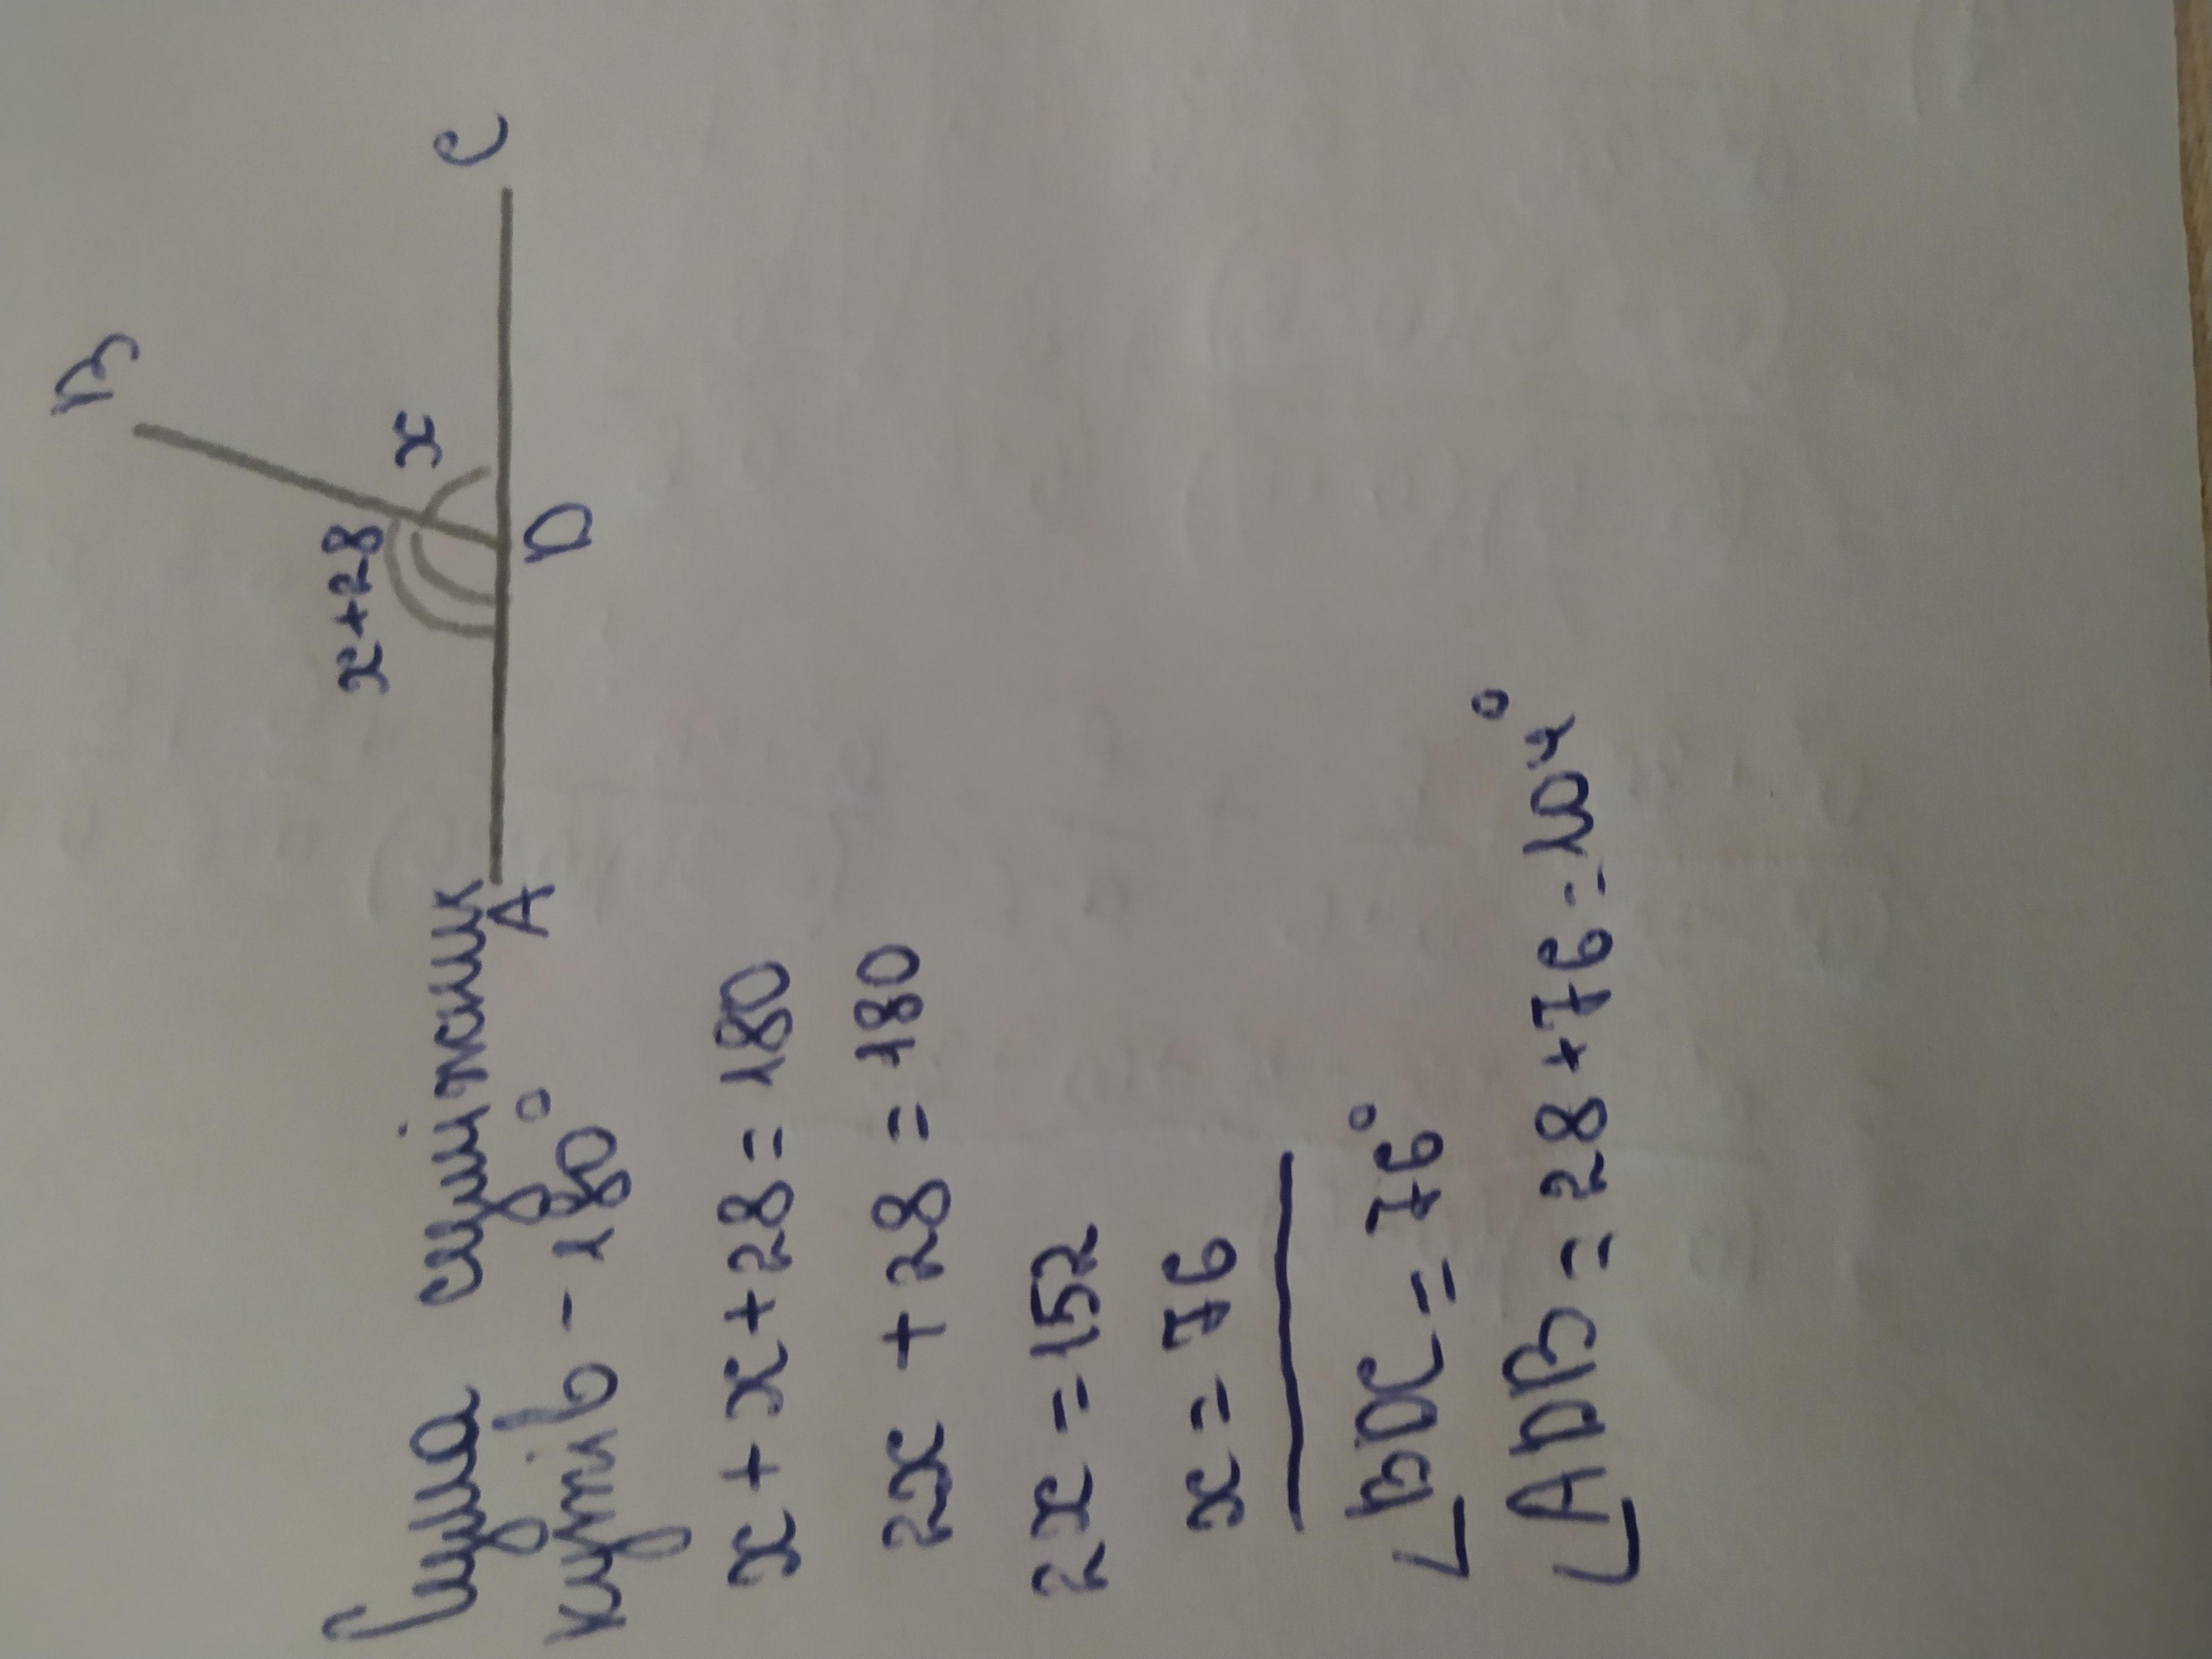 B
x+28
x
A
D
C
Сума суміжних
кутів - 180°
x + x + 28 = 180
2x + 28 = 180
2x = 152
x = 76
∠BDC = 76°
∠ADB = 28 + 76 = 104°